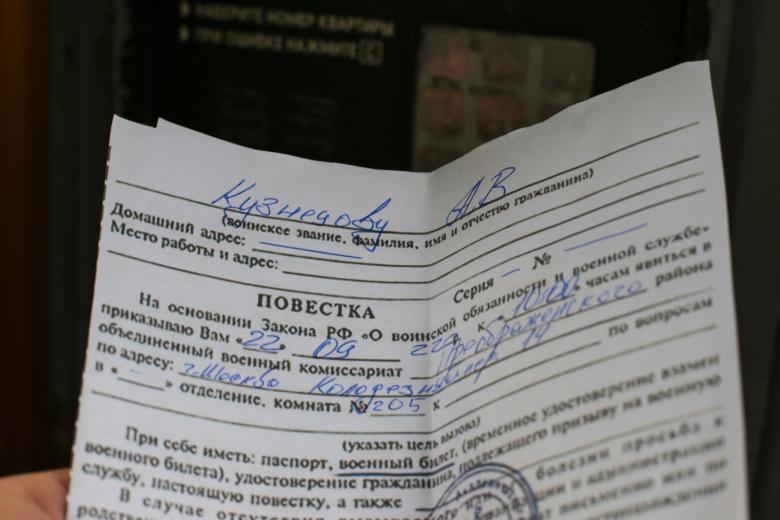 НАБЕРИТЕ НОМЕР КВАРТИРЫ
ПРИ ОШИБКЕ НАЖМИТЕ C
Кузнецову А.В
(воинское звание, фамилия, имя и отчество гражданина)
Домашний адрес:
Место работы и адрес:
Серия — № —
ПОВЕСТКА
На основании Закона РФ «О воинской обязанности и военной службе-
приказываю Вам «22» 09 22 г. к 10:00 часам явиться в
объединенный военный комиссариат Преображенского района
по адресу: г. Москва Колодезный пер 14
в «—» отделение, комната № 205 к по вопросам
(указать цель вызова)
При себе иметь: паспорт, военный билет, (временное удостоверение взамен
военного билета), удостоверение гражданина, подлежащего призыву на военную
службу, настоящую повестку, а также
В случае болезни просьба к